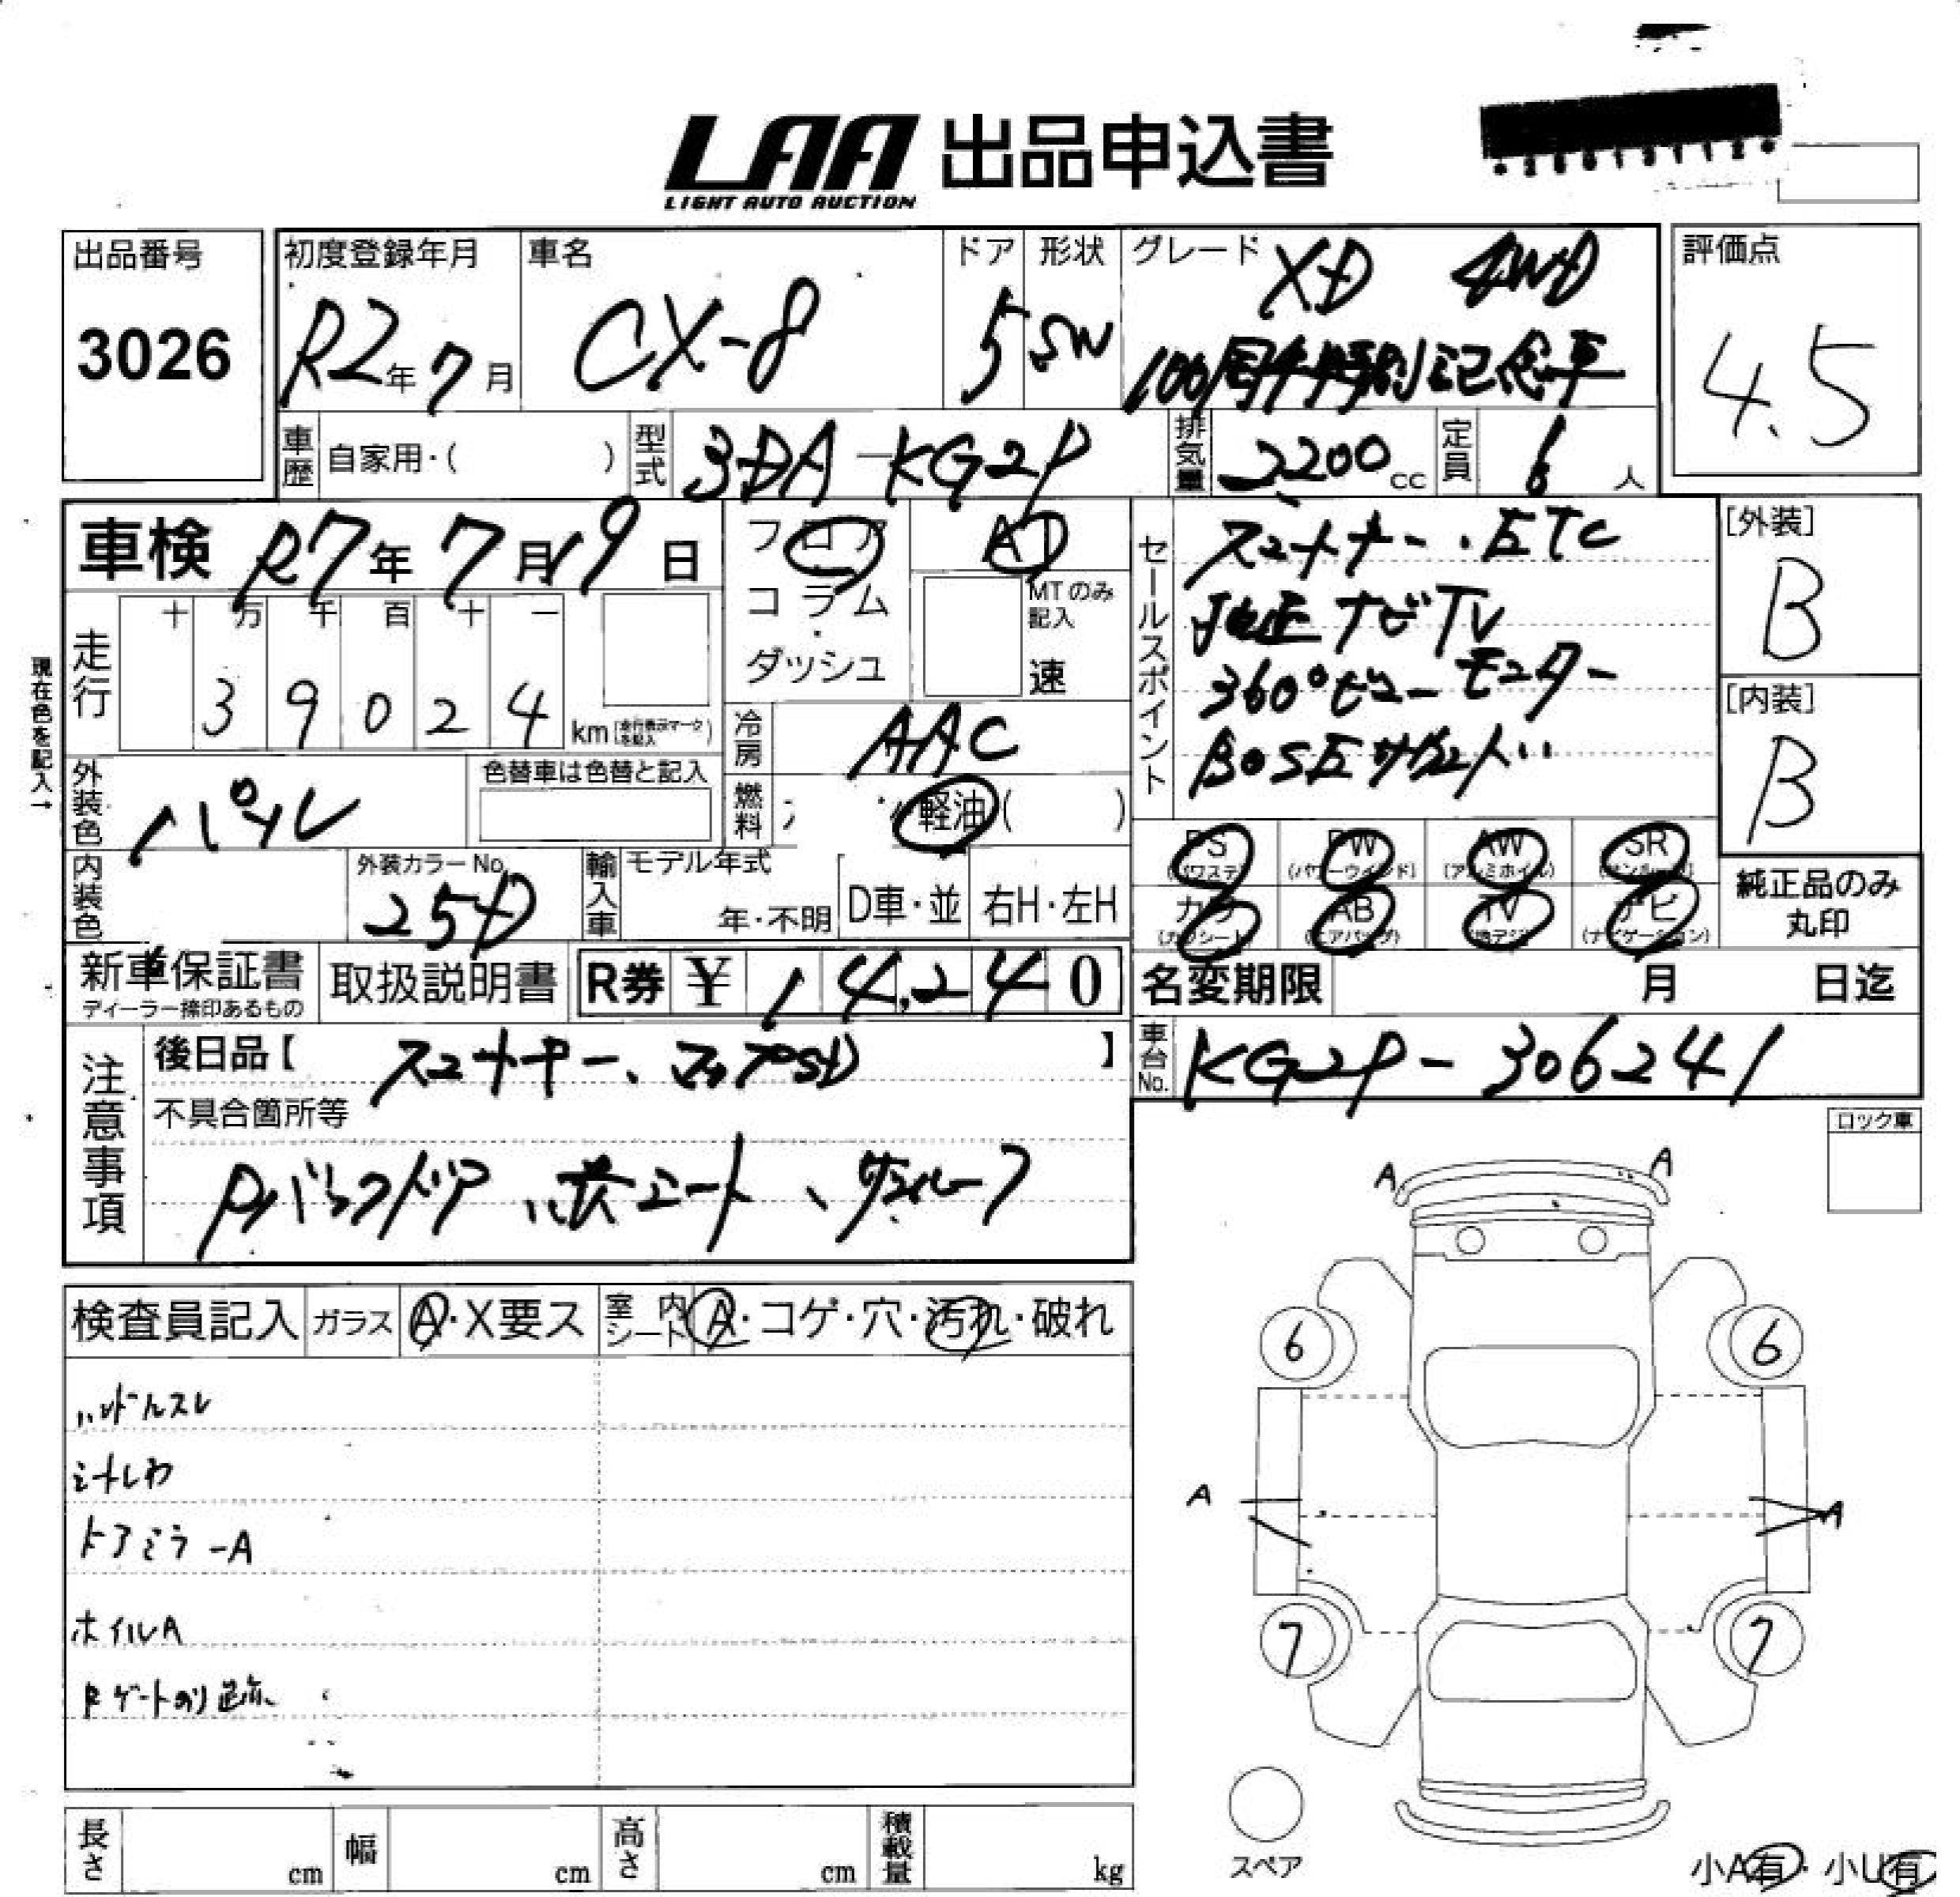 LAA 出品申込書
LIGHT AUTO AUCTION
出品番号
3026
初度登録年月
R2年7月
車名
CX-8
ドア
5
形状
SW
グレード
XD 4WD
100周年特別記念車
評価点
4.5
車歴
自家用・( )
型式
3DA-KG2P
排気量
2200cc
定員
6人
車検 R7年7月19日
フロア
コラム
・
ダッシュ
AT
MTのみ
記入
速
セールスポイント
スマートキー・ETC
純正ナビTV
360°ビューモニター
BOSEサウンド
[外装]
B
[内装]
B
現在色を記入→
走行
十 万 千 百 十 一
3 9 0 2 4
km(走行表示マークを記入)
冷房
AAC
外装色
パール
色替車は色替と記入
燃料
軽油( )
内装色
外装カラーNo.
25D
輸入車
モデル年式
年・不明
D車・並
右H・左H
PS
(パワステ)
PW
(パワーウインド)
AW
(アルミホイル)
SR
(サンルーフ)
カワ
(カワシート)
AB
(エアバッグ)
TV
(地デジ)
ナビ
(ナビゲーション)
純正品のみ
丸印
新車保証書
ディーラー捺印あるもの
取扱説明書
R券 ¥ 14,240
名変期限 月 日迄
注意事項
後日品【 スマートキー、マップSD 】
不具合箇所等
Pバックドア、革シート、サンルーフ
車台No.
KG2P-306241
ロック車
検査員記入
ガラス
A・X要ス
室内シート
A・コゲ・穴・汚れ・破れ
ハンドルスレ
シートしわ
ドアミラーA
ホイルA
Rゲートのり跡
A A
6 6
A A
7 7
スペア
長さ cm
幅 cm
高さ cm
積載量 kg
小A有・小U有